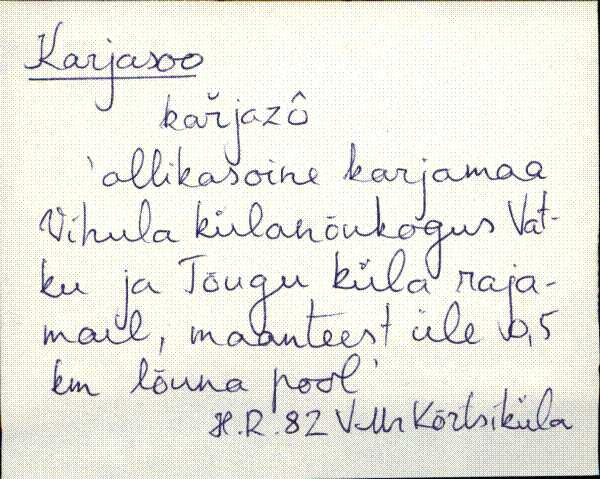 Karjasoo
kařjazô
'allikasoine karjamaa
Vihula külanõukogus Vat-
ku ja Tõugu küla raja-
mail, maanteest üle 0,5
km lõuna pool'
H.R. 82 V-Mr Kõrtsiküla